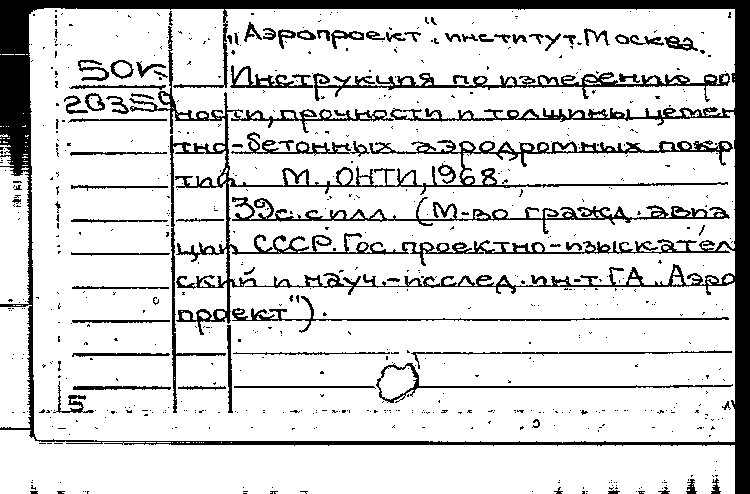 „Аэропроект", институт. Москва.
50к Инструкция по измерению ров
20359 ности, прочности и толщины цемен
тно-бетонных аэродромных покр
тий. М., ОНТИ, 1968.
39с. с илл. (М-во гражд. авиа
ции СССР. Гос. проектно-изыскател
ский и науч.-исслед. ин-т ГА „Аэро
проект").
5